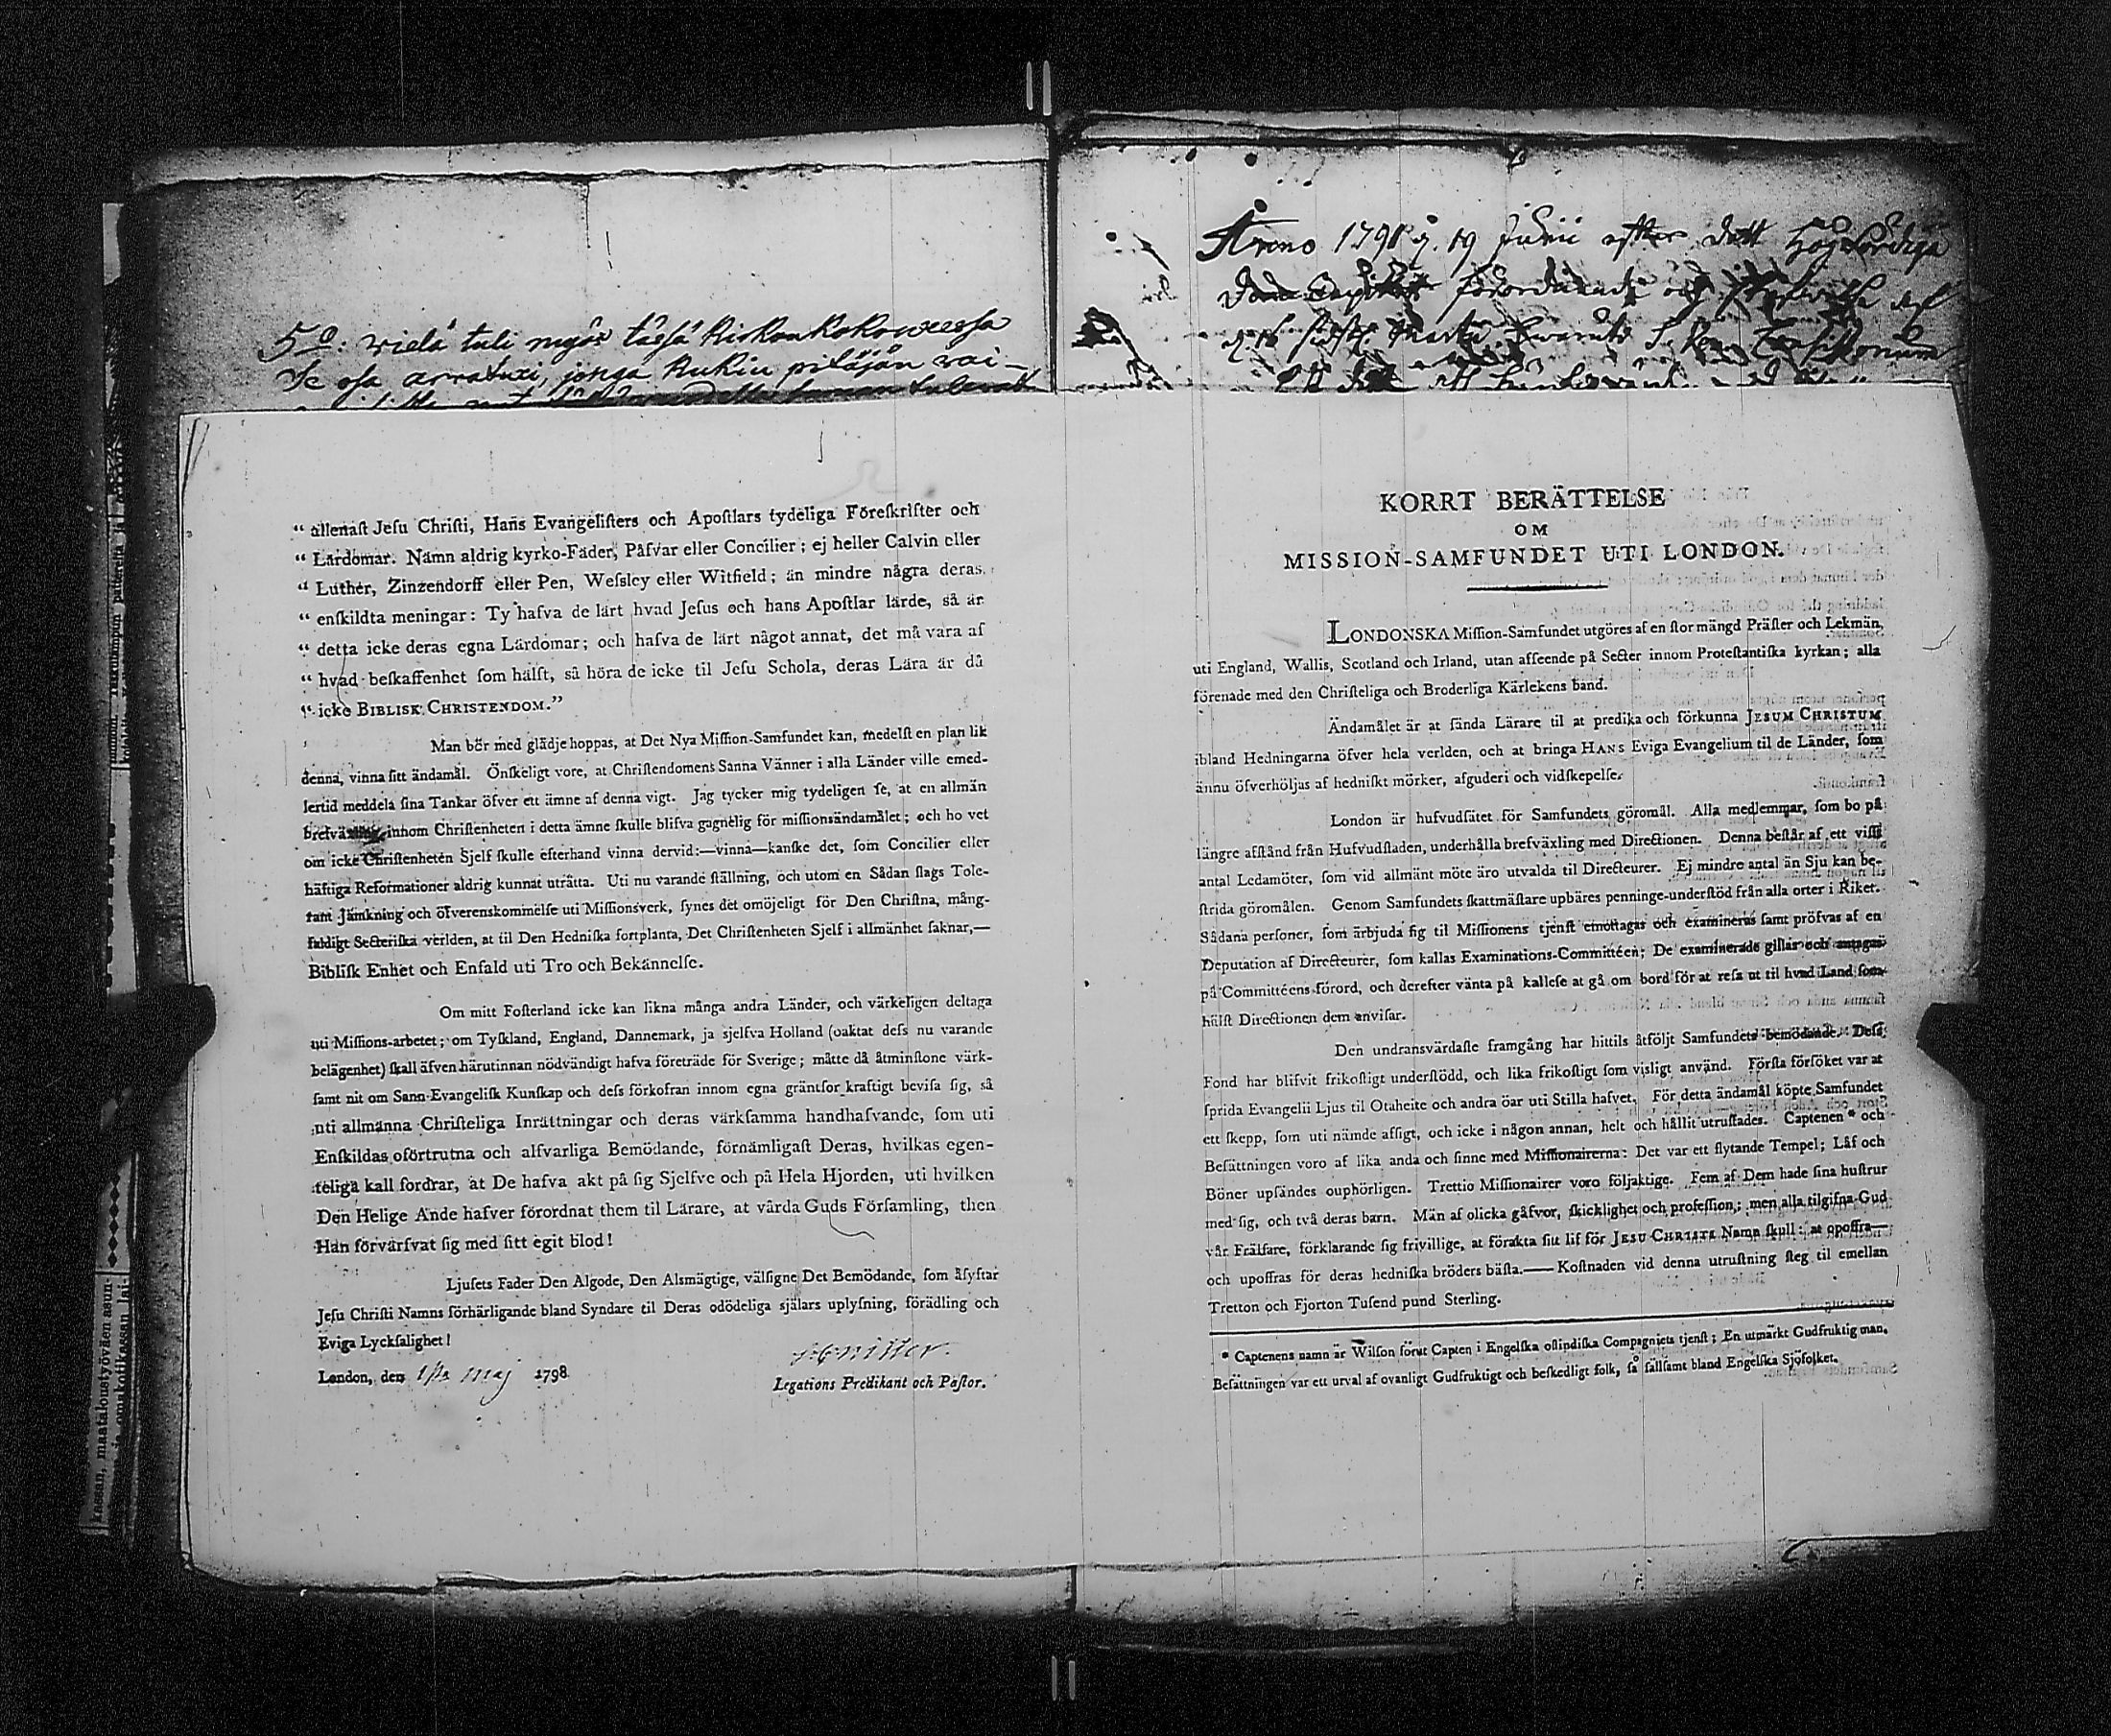 5o: wielä tuli myös tässä Kirkon Kokouxessa
Se osa arvatuxi, jonga Kukin pitäjän wai-
"allenast Jesu Christi, Hans Evangelisters och Apostlars tydeliga Föreskrifter och
"Lärdomar. Nämn aldrig kyrko-Fäder, Påfvar eller Concilier; ej heller Calvin eller
"Luther, Zinzendorff eller Pen, Wessley eller Witfield; än mindre några deras
"enskildta meningar: Ty hafva de lärt hvad Jesus och hans Apostlar lärde, så är
"detta icke deras egna Lärdomar; och hafva de lärt något annat, det må vara af
"hvad beskaffenhet som hälst, så höra de icke til Jesu Schola, deras Lära är då
"icke BIBLISK CHRISTENDOM."
Man bör med glädje hoppas, at Det Nya Mission-Samfundet kan, medelst en plan lik
denna, vinna sitt ändamål. Önskeligt vore, at Christendomens Sanna Vänner i alla Länder ville emed-
lertid meddela sina Tankar öfver ett ämne af denna vigt. Jag tycker mig tydeligen se, at en allmän
brefväxling innom Christenheten i detta ämne skulle blifva gagnelig för missionsändamålet; och ho vet
om icke Christenheten Sjelf skulle efterhand vinna dervid:—vinna—kanske det, som Concilier eller
häftiga Reformationer aldrig kunnat uträtta. Uti nu varande ställning, och utom en Sådan slags Tole-
rant Jämkning och öfverenskommelse uti Missionsverk, synes det omöjeligt för Den Christna, mång-
faldigt Secteriska verlden, at til Den Hedniska fortplanta, Det Christenheten Sjelf i allmänhet saknar,—
Biblisk Enhet och Enfald uti Tro och Bekännelse.
Om mitt Fosterland icke kan likna många andra Länder, och värkeligen deltaga
uti Missions-arbetet; om Tyskland, England, Dannemark, ja sjelfva Holland (oaktat dess nu varande
belägenhet) skall äfven härutinnan nödvändigt hafva företräde för Sverige; måtte då åtminstone värk-
samt nit om Sann-Evangelisk Kunskap och dess förkofran innom egna gräntsor kraftigt bevisa sig, så
uti allmänna Christeliga Inrättningar och deras värksamma handhafvande, som uti
Enskildas oförtrutna och alfvarliga Bemödande, förnämligast Deras, hvilkas egen-
teliga kall fordrar, at De hafva akt på sig Sjelfve och på Hela Hjorden, uti hvilken
Den Helige Ande hafver förordnat them til Lärare, at vårda Guds Församling, then
Han förvärfvat sig med sitt egit blod!
Ljusets Fader Den Algode, Den Alsmägtige, välsigne Det Bemödande, som åsyftar
Jesu Christi Namns förhärligande bland Syndare til Deras odödeliga själars uplysning, förädling och
Eviga Lycksalighet!
London, den 1sta Maj 1798
Legations Predikant och Pastor.
Anno 1798 d. 19 Junii efter dett Högwördiga
KORRT BERÄTTELSE
OM
MISSION-SAMFUNDET UTI LONDON.
LONDONSKA Mission-Samfundet utgöres af en stor mängd Präster och Lekmän,
uti England, Wallis, Scotland och Irland, utan afseende på Secter innom Protestantiska kyrkan; alla
förenade med den Christeliga och Broderliga Kärlekens band.
Ändamålet är at sända Lärare til at predika och förkunna JESUM CHRISTUM
ibland Hedningarna öfver hela verlden, och at bringa HANS Eviga Evangelium til de Länder, som
ännu öfverhöljas af hedniskt mörker, afguderi och vidskepelse.
London är hufvudsätet för Samfundets göromål. Alla medlemmar, som bo på
längre afstånd från Hufvudstaden, underhålla brefväxling med Directionen. Denna består af ett visst
antal Ledamöter, som vid allmänt möte äro utvalda til Directeurer. Ej mindre antal än Sju kan be-
strida göromålen. Genom Samfundets skattmästare upbäres penninge-understöd från alla orter i Riket.
Sådana personer, som ärbjuda sig til Missionens tjenst emottagas och examineras samt pröfvas af en
Deputation af Directeurer, som kallas Examinations-Committéen; De examinerade gillas och antagas
på Committéens förord, och derefter vänta på kallese at gå om bord för at resa ut til hvad Land som
hälst Directionen dem anvisar.
Den undransvärdaste framgång har hittils åtföljt Samfundets bemödande. Dess
Fond har blifvit frikostigt understödd, och lika frikostigt som visligt använd. Första försöket var at
sprida Evangelii Ljus til Otaheite och andra öar uti Stilla hafvet. För detta ändamål köpte Samfundet
ett skepp, som uti nämde afsigt, och icke i någon annan, helt och hållit utrustades. Captenen * och
Besättningen voro af lika anda och sinne med Missionairerna: Det var ett flytande Tempel; Låf och
Böner upsändes ouphörligen. Trettio Missionairer voro följaktige. Fem af Dem hade sina hustrur
med sig, och två deras barn. Män af olicka gåfvor, skicklighet och profession; men alla tilgifna Gud
vår Frälsare, förklarande sig frivillige, at förakta sitt lif för JESU CHRISTI Namn skull: at opoffra—
och upoffras för deras hedniska bröders bästa.—— Kostnaden vid denna utrustning steg til emellan
Tretton och Fjorton Tusend pund Sterling.
* Captenens namn är Wilson förut Capten i Engelska ostindiska Compagniets tjenst; En utmärkt Gudfruktig man.
Besättningen var ett urval af ovanligt Gudfruktigt och beskedligt folk, så sällsamt bland Engelska Sjöfolket.